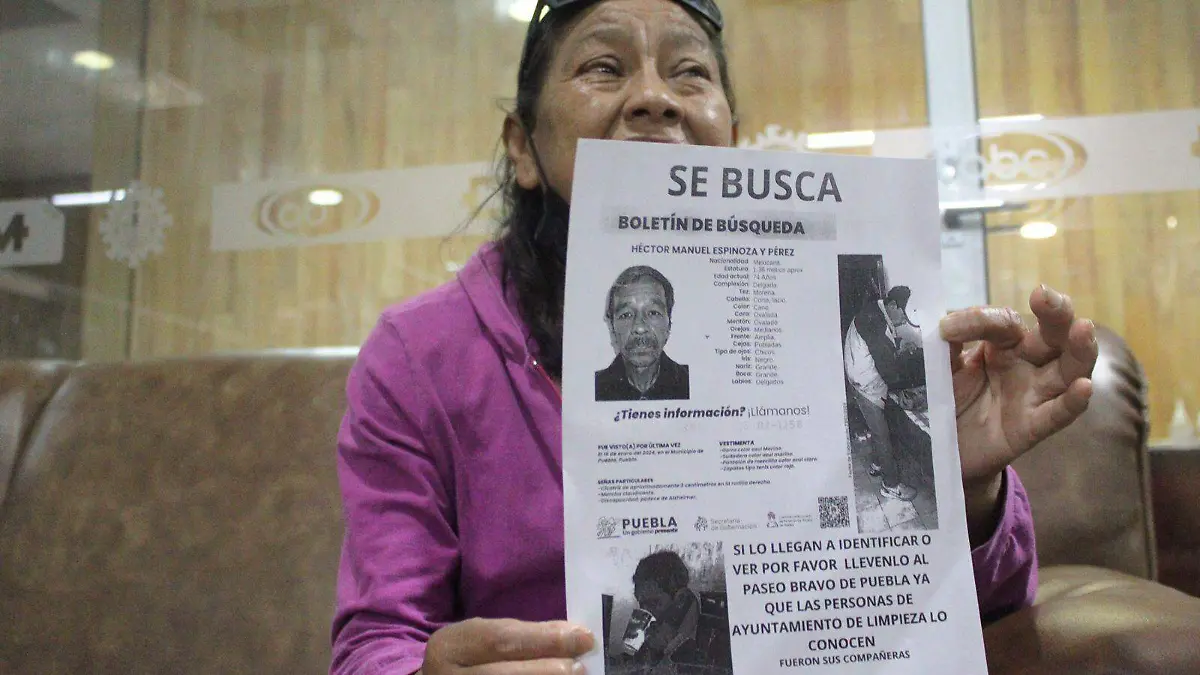 SE BUSCA
BOLETÍN DE BÚSQUEDA
HÉCTOR MANUEL ESPINOZA Y PÉREZ
Nacionalidad: Mexicana
Estatura: 1.36 metros aprox
Edad actual: 74 Años
Complexión: Delgada
Tez: Morena
Cabello: Cano, lacio
Color: Cano
Cara: Ovalada
Mentón: Ovalado
Orejas: Medianas
Frente: Amplia
Cejas: Pobladas
Tipo de ojos: Chicos
Iris: Negro
Nariz: Grande
Boca: Grande
Labios: Delgados
¿Tienes información? ¡Llámanos!
FUE VISTO(A) POR ÚLTIMA VEZ
El 16 de enero del 2024, en el Municipio de
Puebla, Puebla.
VESTIMENTA
SEÑAS PARTICULARES
-Discapacidad: padece de Alzheimer.
PUEBLA
Un gobierno presente
Secretaría
de Gobernación
SI LO LLEGAN A IDENTIFICAR O
VER POR FAVOR LLEVENLO AL
PASEO BRAVO DE PUEBLA YA
QUE LAS PERSONAS DE
AYUNTAMIENTO DE LIMPIEZA LO
CONOCEN
FUERON SUS COMPAÑERAS
abc